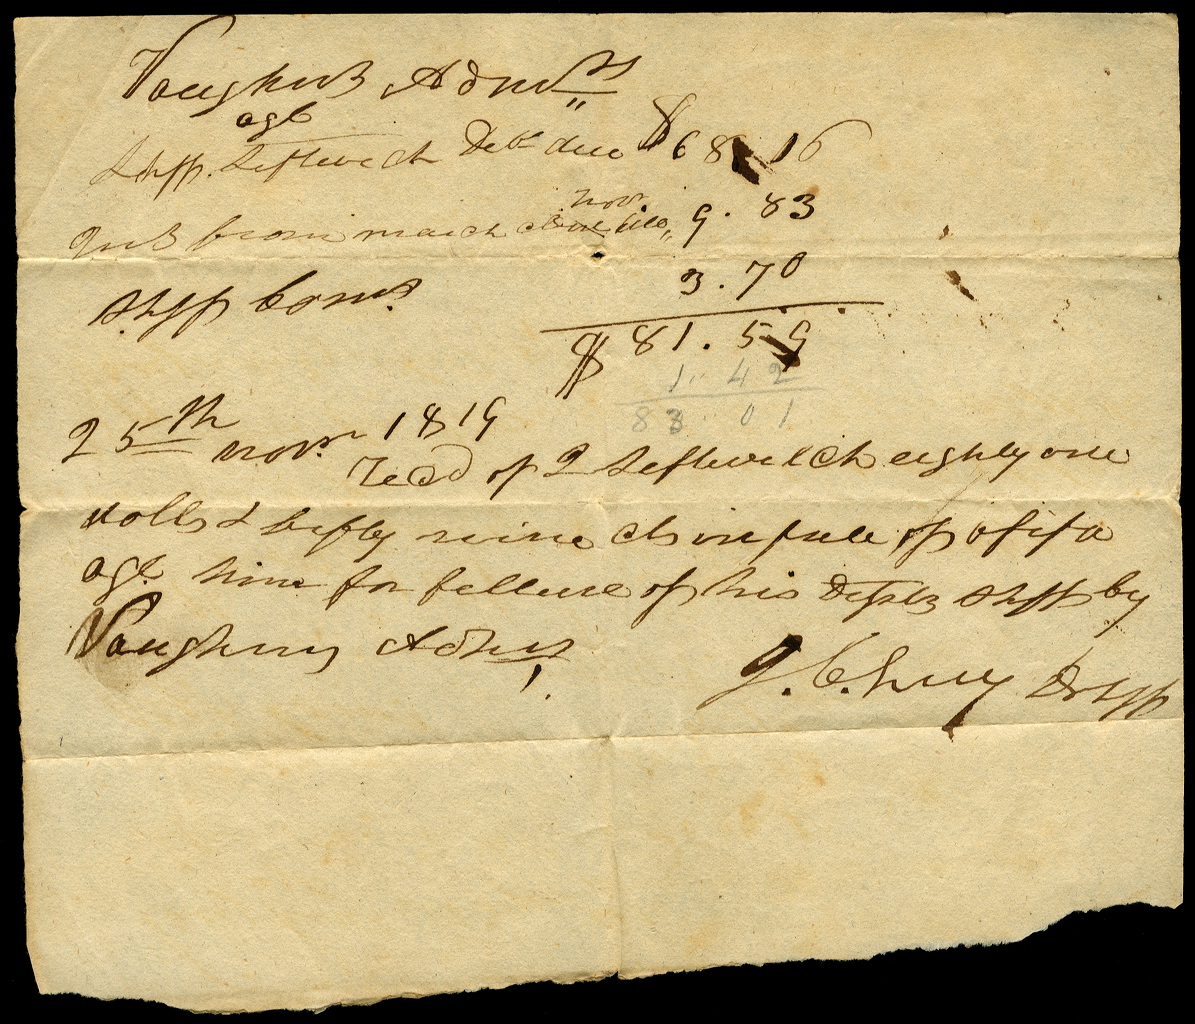 Vaughns Admrs
agt
Shff. Leftwich Debt due $68 16
Int from march Court till Novr 9. 83
Shff Coms. 3. 70
$ 81. 59
1. 42
83 01
25th Novr. 1819
Recd of J Leftwich eighty one
dolls & fifty nine cts in full of a fifa
agt him for fallure of his depts Shff by
Vaughns Admrs
J. C. Guy D Shff